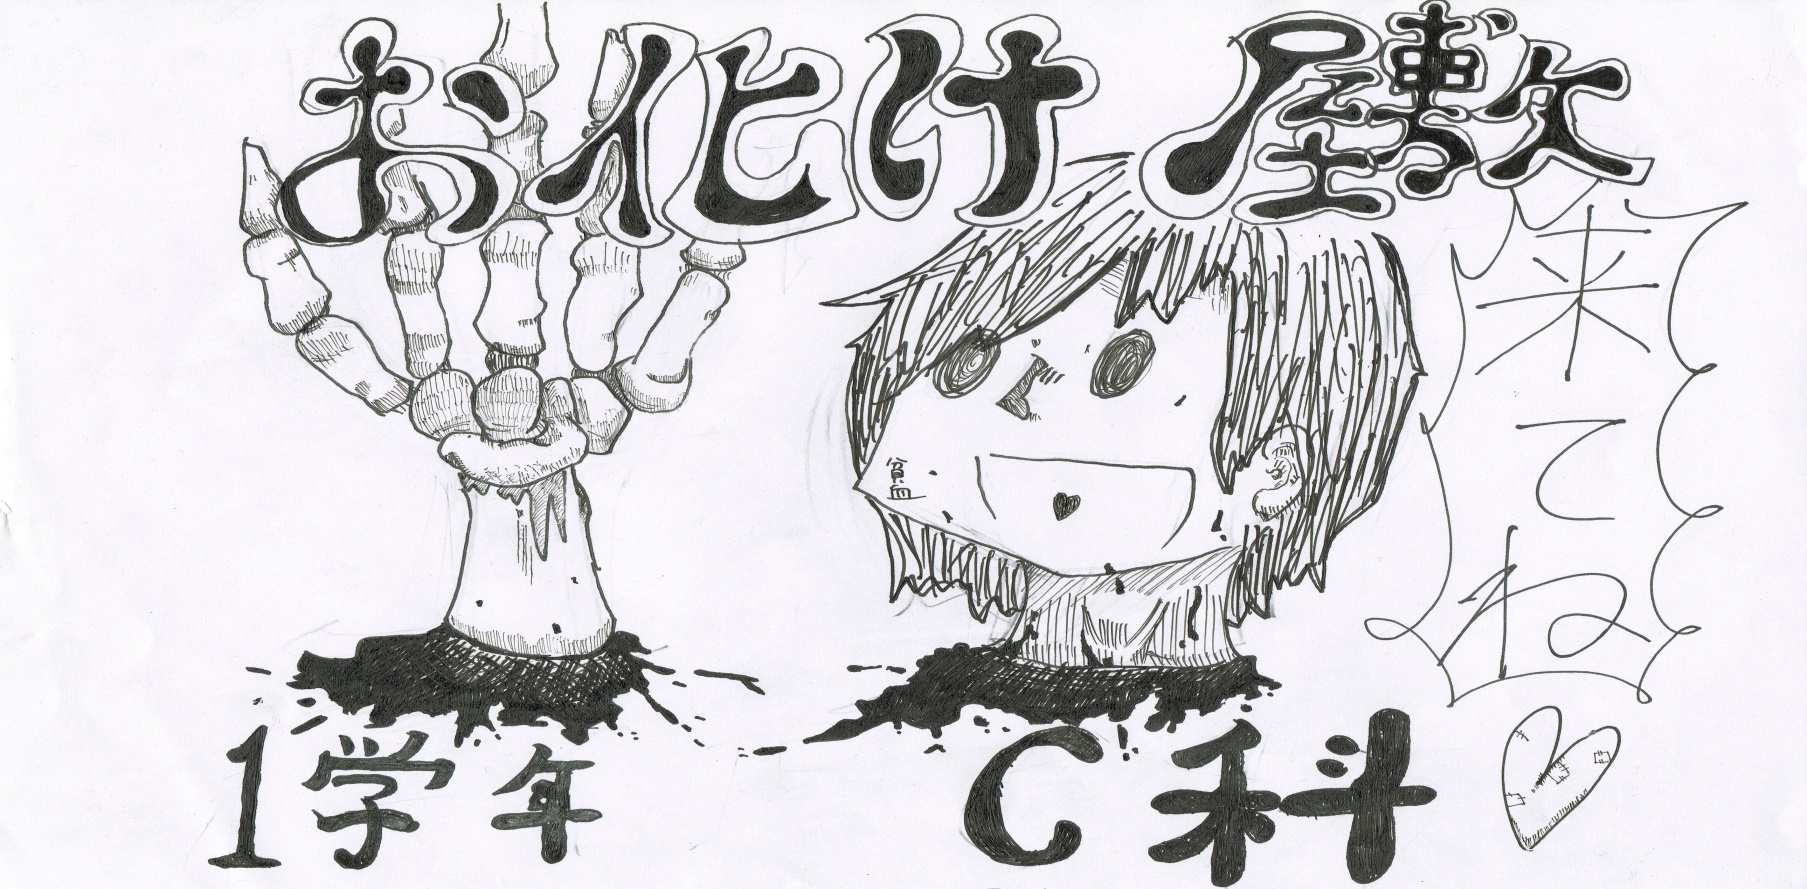 お化け屋敷
来てね
貧血
1学年 C科